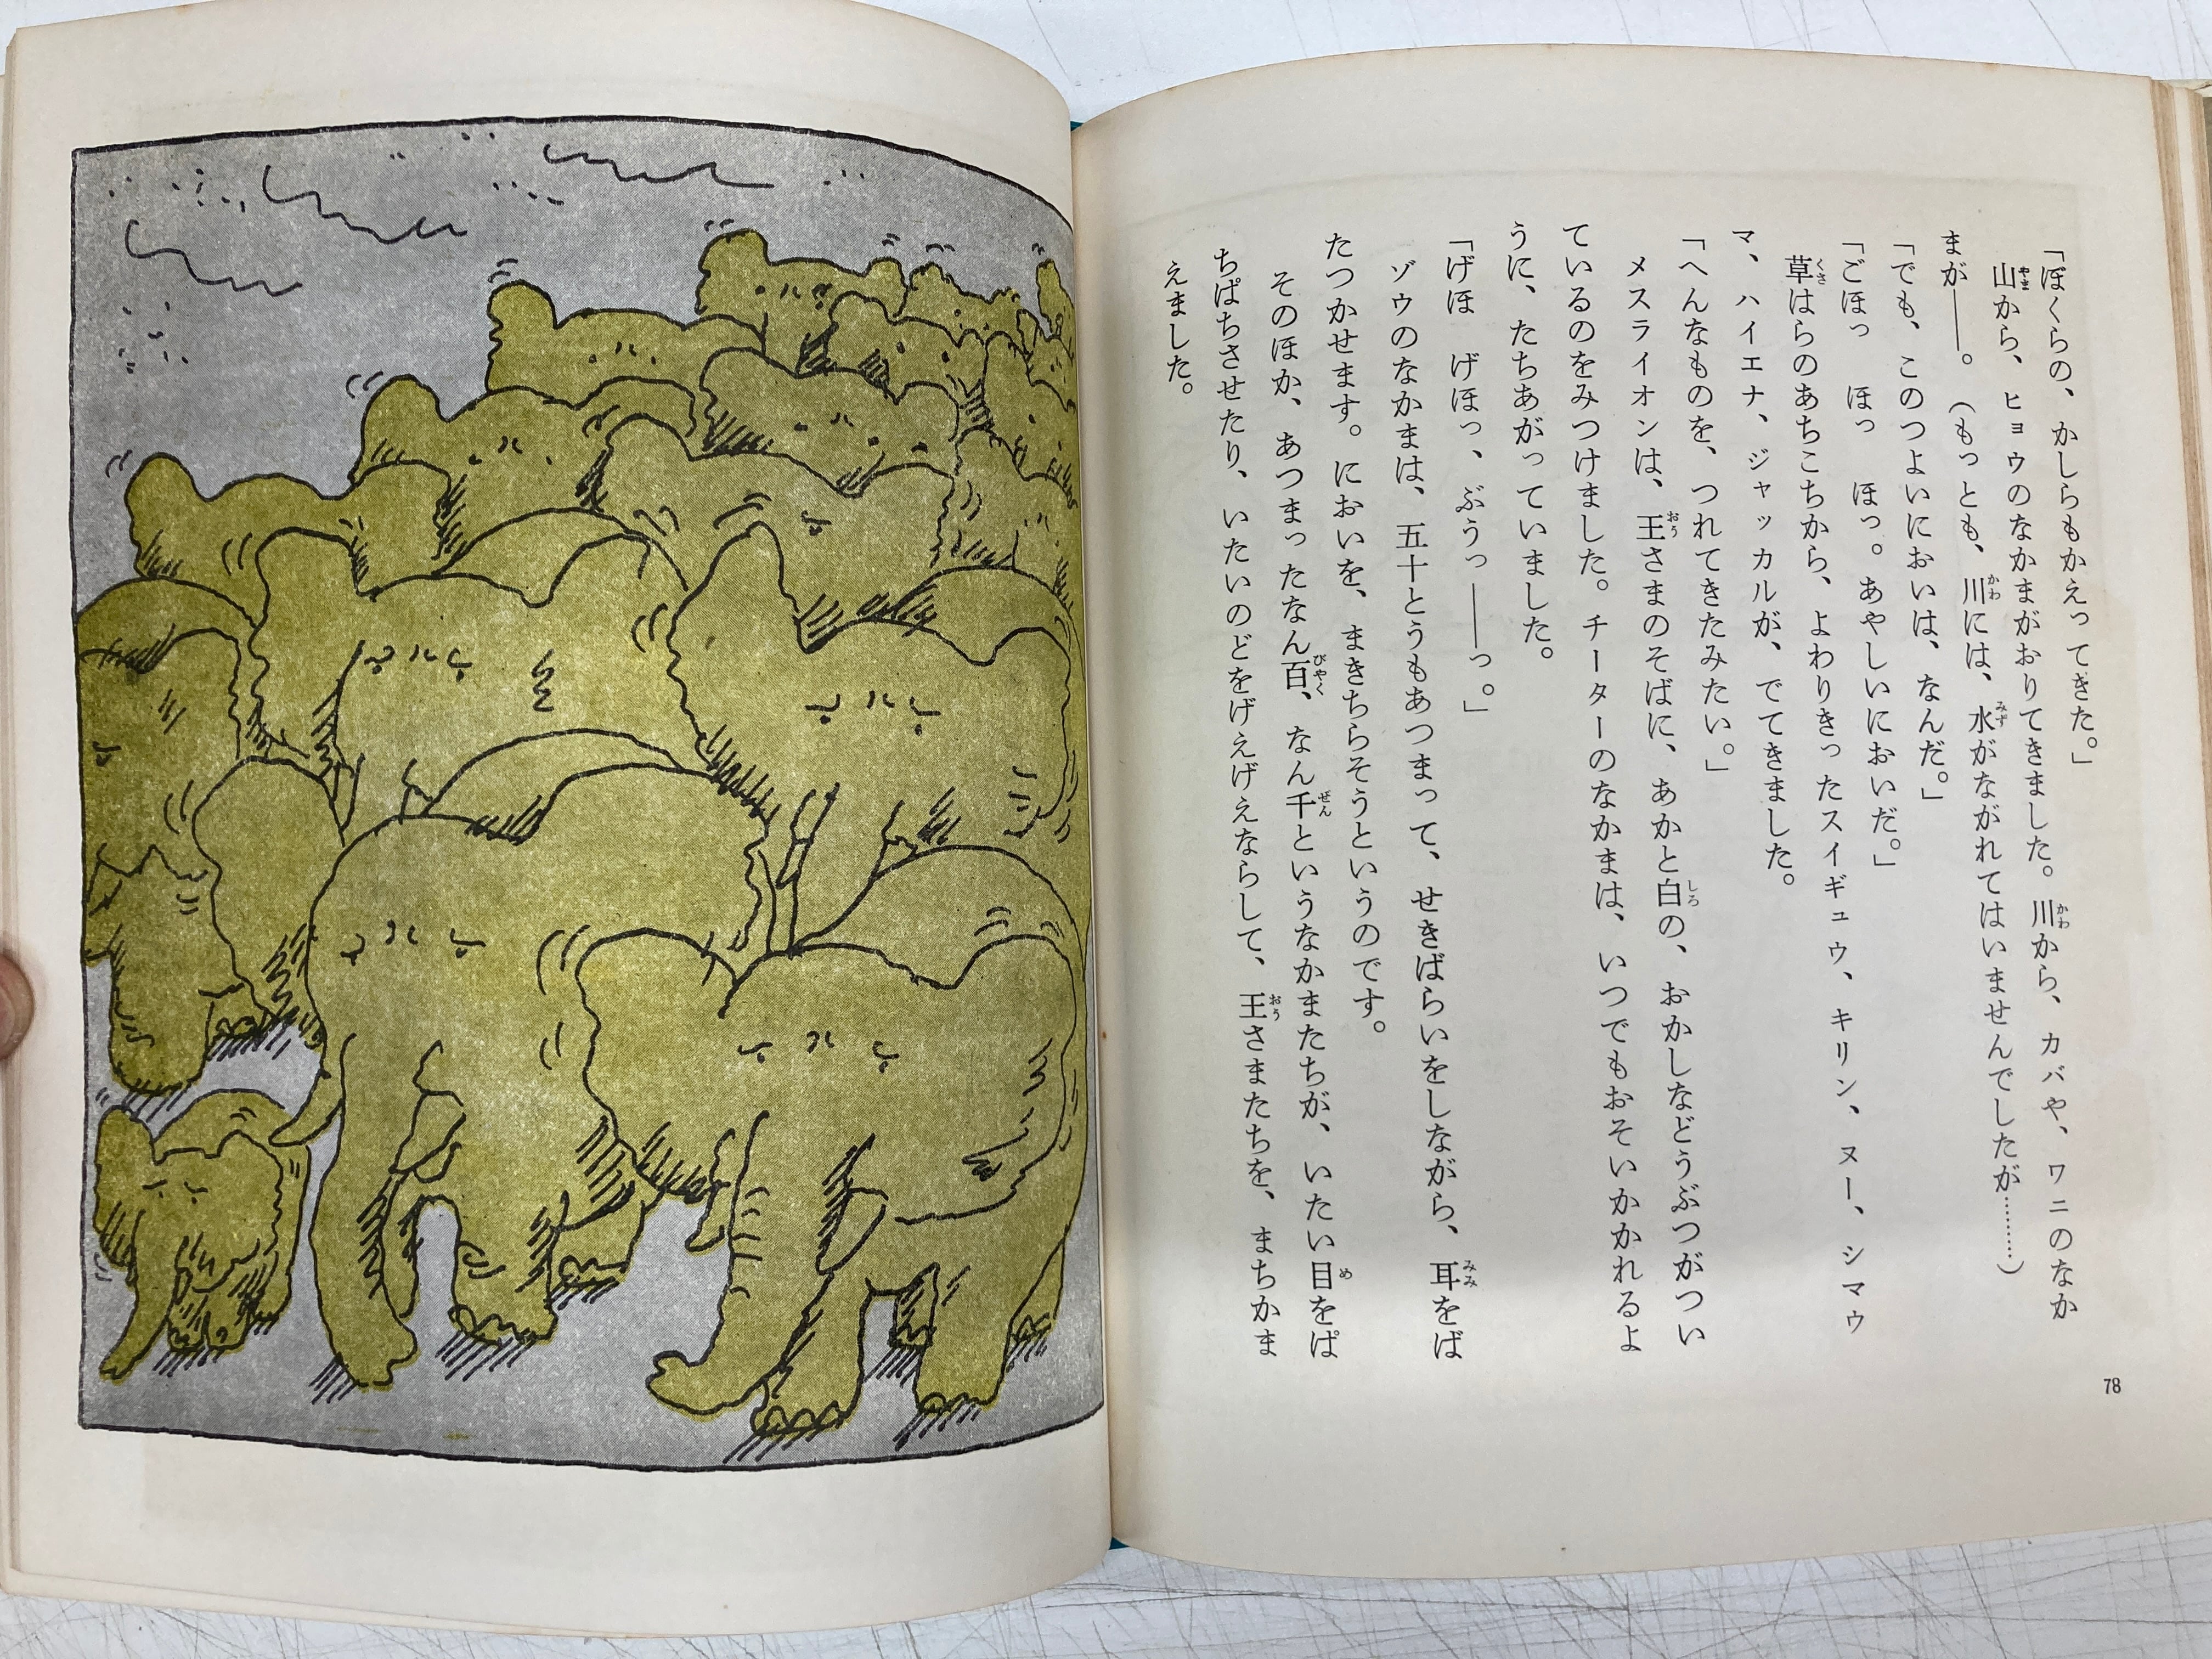 「ぼくらの、かしらもかえってきた。」
山から、ヒョウのなかまがおりてきました。川から、カバや、ワニのなか
まが――。（もっとも、川には、水がながれてはいませんでしたが………）
「でも、このつよいにおいは、なんだ。」
「ごほっ　ほっ　ほっ。あやしいにおいだ。」
草はらのあちこちから、よわりきったスイギュウ、キリン、ヌー、シマウ
マ、ハイエナ、ジャッカルが、でてきました。
「へんなものを、つれてきたみたい。」
メスライオンは、王さまのそばに、あかと白の、おかしなどうぶつがつい
ているのをみつけました。チーターのなかまは、いつでもおそいかかれるよ
うに、たちあがっていました。
「げほ　げほっ、ぶうっ――っ。」
ゾウのなかまは、五十とうもあつまって、せきばらいをしながら、耳をば
たつかせます。においを、まきちらそうというのです。
そのほか、あつまったなん百、なん千というなかまたちが、いたい目をぱ
ちぱちさせたり、いたいのどをげえげえならして、王さまたちを、まちかま
えました。
78